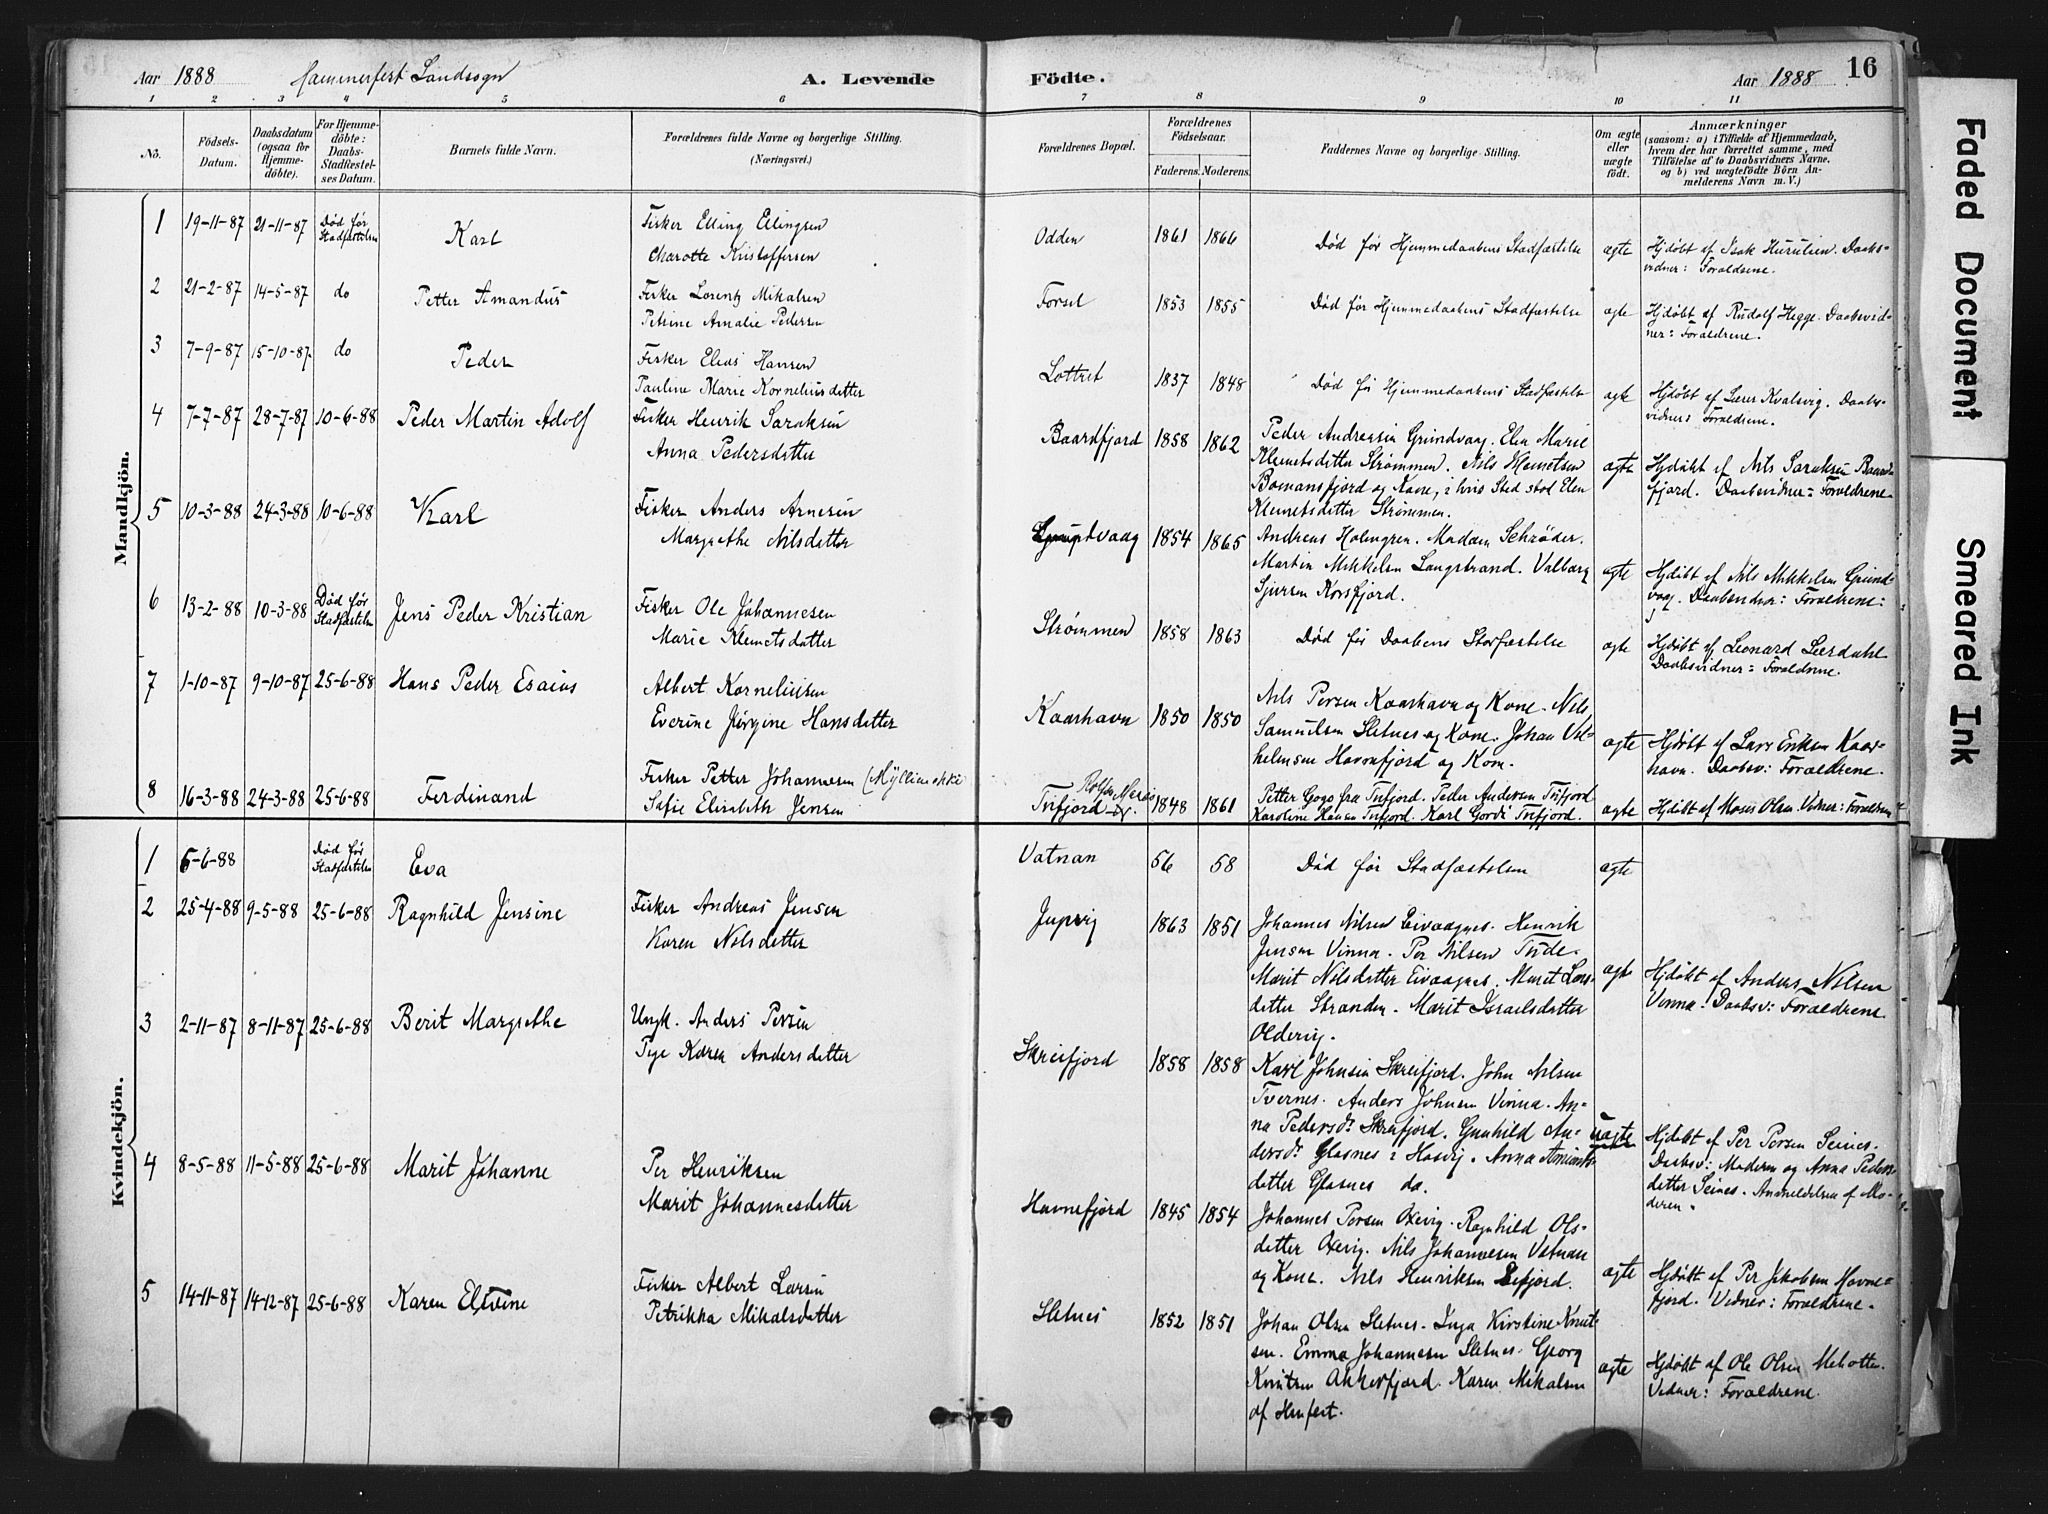 Aar 1888 Hammerfest Landsogn A. Levende Födte. Aar 1888 16
1 2 3 4 5 6 7 8 9 10 11
No. Födsels-Datum. Daabsdatum (ogsaa for Hjemme-döbte). For Hjemme-döbte: Daabs-Stadfæstel-ses Datum. Barnets fulde Navn. Forældrenes fulde Navne og borgerlige Stilling. (Næringsvei.) Forældrenes Bopæl. Forældrenes Födselsaar. Faderens. Moderens. Faddernes Navne og borgerlige Stilling. Om ægte eller uægte födt. Anmærkninger (saasom: a) i Tilfælde af Hjemmedaab, hvem der har forrettet samme, med Tilföielse af to Daabsvidners Navne. og b) ved uægtefödte Börn An-melderens Navn m. V.)
Mandkjön.
1 19-11-87 21-11-87 Død før Stadfæstelsen Karl Fisker Elling Ellingsen
Charotte Kristoffersen
Odden 1861 1866 Død før Hjemmedaabens Stadfæstelse ægte Hjdøbt af Isak Daabs-
vidner: Forældrene.
2 21-2-87 14-5-87 do Petter Amandus Fisker Lorentz Mikalsen
Petrine Amalie Pedersen
Forsøl 1853 1855 Død før Hjemmedaabens Stadfæstelse ægte Hjdøbt af Rudolf Hegge. Daabsvid-
ner: Forældrene.
3 7-9-87 15-10-87 do Peder Fisker Elias Hansen
Pauline Marie Korneliusdatter
Lottret 1837 1848 Død før Hjemmedaabens Stadfæstelse ægte Hjdøbt af Lærer Kvalsvig. Daabs-
vidner: Forældrene.
4 7-7-87 28-7-87 10-6-88 Peder Martin Adolf Fisker Henrik Saraksen
Anna Pedersdatter
Baardfjord 1858 1862 Peder Andreassen Grundvaag. Elen Marie
Klemetsdatter Strømmen. Nils Klemetsen
Bomansfjord og Kone, i hvis Sted stod Elen
Klemetsdatter Strømmen.
ægte Hjdøbt af Nils Saraksen Baard-
fjord. Daabsvidner: Forældrene.
5 10-3-88 24-3-88 10-6-88 Karl Fisker Anders Arnesen
Margrethe Nilsdatter
1854 1865 Andreas Holmgren. Madam Schrøder.
Martin Mikkelsen Langstrand. Valborg
Sjursen Korsfjord.
ægte Hjdøbt af Nils Mikkelsen Grund-
vag. Daabsvidner: Forældrene.
6 13-2-88 10-3-88 Død før Stadfæstelsen Jens Peder Kristian Fisker Ole Johannesen
Marie Klemetsdatter
Strømmen 1858 1863 Død før Daabens Stadfæstelse ægte Hjdøbt af Leonard Leerdahl
Daabsvidner: Forældrene.
7 1-10-87 9-10-87 25-6-88 Hans Peder Esaias Albert Korneliusen
Everine Jørgine Hansdatter
Kaarhavn 1850 1850 Nils Persen Kaarhavn og Kone. Nils
Samuelsen Sletnes og Kone. Johan Vil-
helmsen Havnefjord og Kone.
ægte Hjdøbt af Lars Eriksen Kaar-
havn. Daabsv: Forældrene.
8 16-3-88 24-3-88 25-6-88 Ferdinand Fisker Petter Johannesen (Myllimokki
Sofie Elisabeth Jensen
Trifjord 1848 1861 Petter Gogo fra Trifjord. Peder Andersen Trifjord
Karoline Hansen Trifjord. Karl Gordi Trifjord.
ægte Hjdøbt af Moses Olsen Vidner: Forældrene
Kvindekjön.
1 5-6-88 Død før Stadfæstelsen Eva Vatnan 56 58 Død før Stadfæstelsen ægte
2 25-4-88 9-5-88 25-6-88 Ragnhild Jensine Fisker Andreas Jensen
Karen Nilsdatter
Jupvig 1863 1851 Johannes Nilsen Eivaagnes. Henrik
Jensen Vinna. Per Nilsen
Marit Nilsdatter Eivaagnes. Marit Lars-
datter Stranden. Marit Israelsdatter
Oldervig.
ægte Hjdøbt af Anders Nilsen
Vinna. Daabsv: Forældrene.
3 2-11-87 8-11-87 25-6-88 Berit Margrethe Ungk. Anders Persen
Pige Karen Andersdatter
Skreifjord 1858 1858 Karl Johnsen Skreifjord. John Nilsen
Tvernes. Anders Johnsen Vinna. An-
na Pedersdr. Skreifjord. Gunhild An-
dersdr. Glasnes i Hasvig. Anna Aminds-
datter Glasnes do.
uægte Hjdøbt af Per Persen Seines.
Daabsv: Moderen og Anna Peders-
datter Seines. Anmeldelsen af Mo-
deren.
4 8-5-88 11-5-88 25-6-88 Marit Johanne Per Henriksen
Marit Johannesdatter
Havnefjord 1845 1854 Johannes Persen Oxevig. Ragnhild Ols-
datter Oxevig. Nils Johannesen Vatnan
og Kone. Nils Henriksen Lefjord.
ægte Hjdøbt af Per Jakobsen Havne-
fjord. Vidner: Forældrene.
5 14-11-87 14-12-87 25-6-88 Karen Elvine Fisker Albert Larsen
Petrikka Mikalsdatter
Sletnes 1852 1851 Johan Olsen Sletnes. Inga Kirstine Knut-
sen. Emma Johannesen Sletnes. Georg
Knutsen Akkerfjord. Karen Mikalsen
af Hmfest.
ægte Hjdøbt af Ole Olsen Mehotten.
Vidner: Forældrene.
Faded Document Smeared Ink